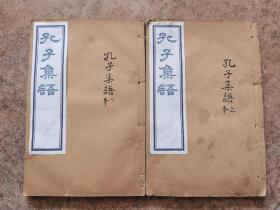 孔子集語
孔子集語 下本
孔子集語
孔子集語 上本